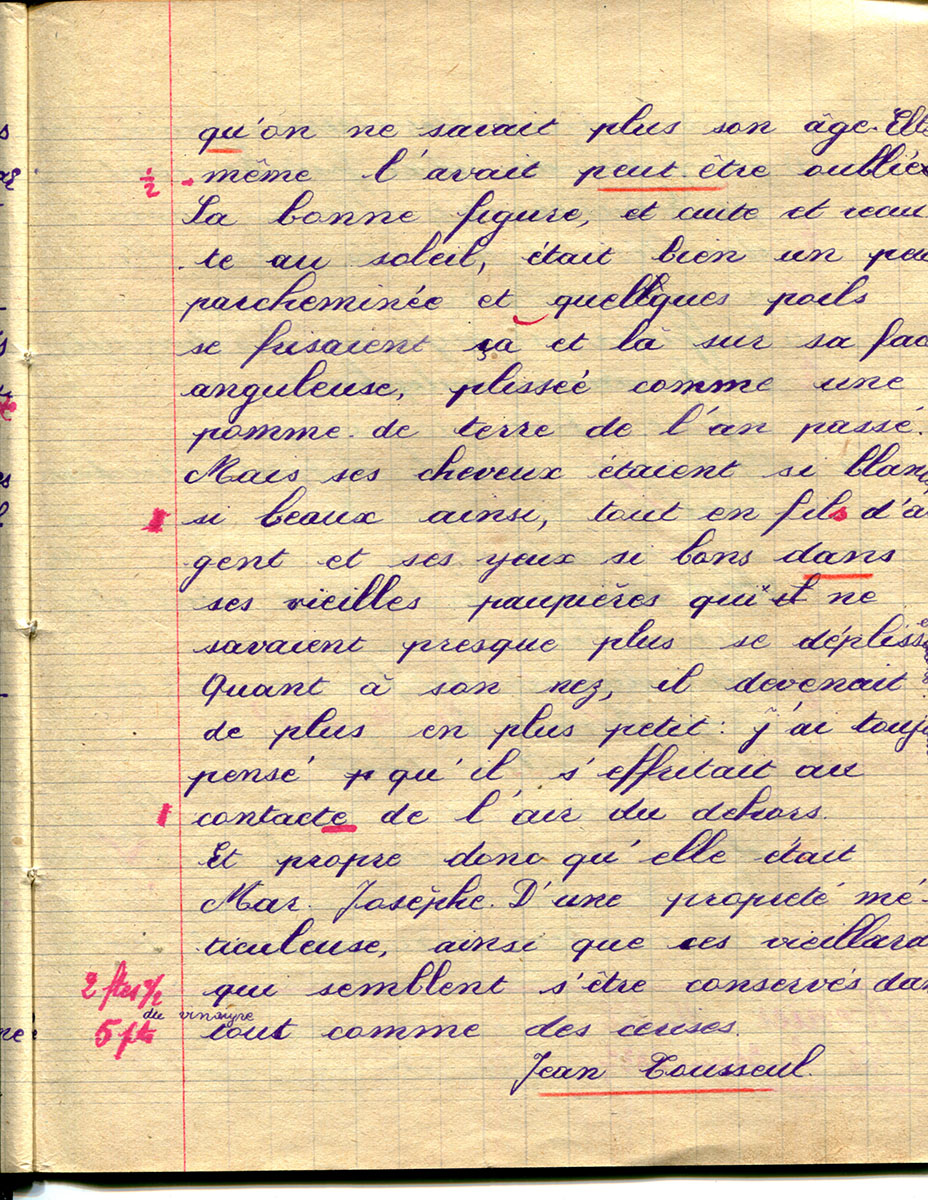 qu'on ne savait plus son âge. Elle
1/2 même l'avait peut être oublié
Sa bonne figure, et cuite et recui
te au soleil, était bien un peu
parcheminée et quelques poils
se frisaient çà et là sur sa fac
anguleuse, plisseé comme une
pomme de terre de l'an passé.
Mais ses cheveux étaient si blancs
1 si beaux ainsi, tout en fils d'ar
gent et ses yeux si bons dans
ses vieilles paupières qui ne
savaient presque plus se déplisser
Quant à son nez, il devenait
de plus en plus petit : j'ai toujo
pensé qu'il s'effritait au
1 contacte de l'air du dehors.
Et propre donc qu'elle était
Mar. Josèphe. D'une propreté mé-
ticuleuse, ainsi que ces vieillard
2 ftes 1/2 qui semblent s'être conservés dan
du vinaigre
5 pts tout comme des cerises.
Jean Tousseul.